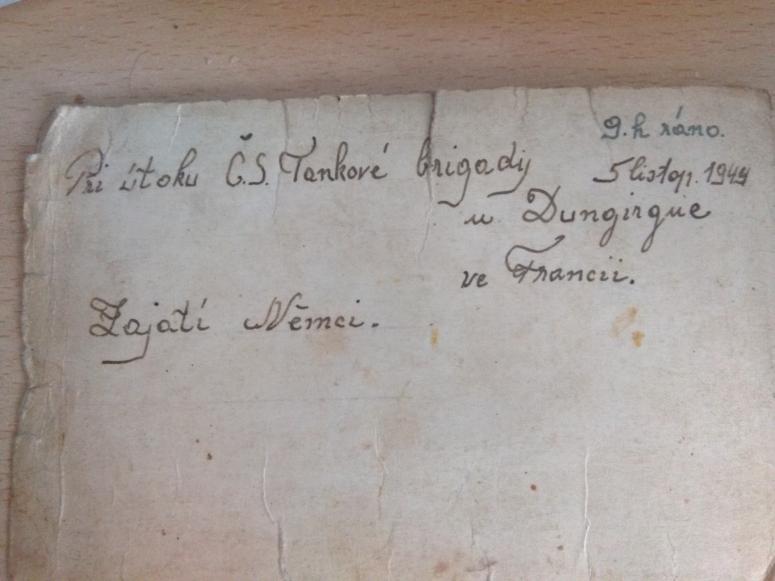 9. h ráno.
Pri útoku Č.S. Tankové brigady 5 listop. 1944
u Dungirgue
ve Francii.
Zajatí Němci.